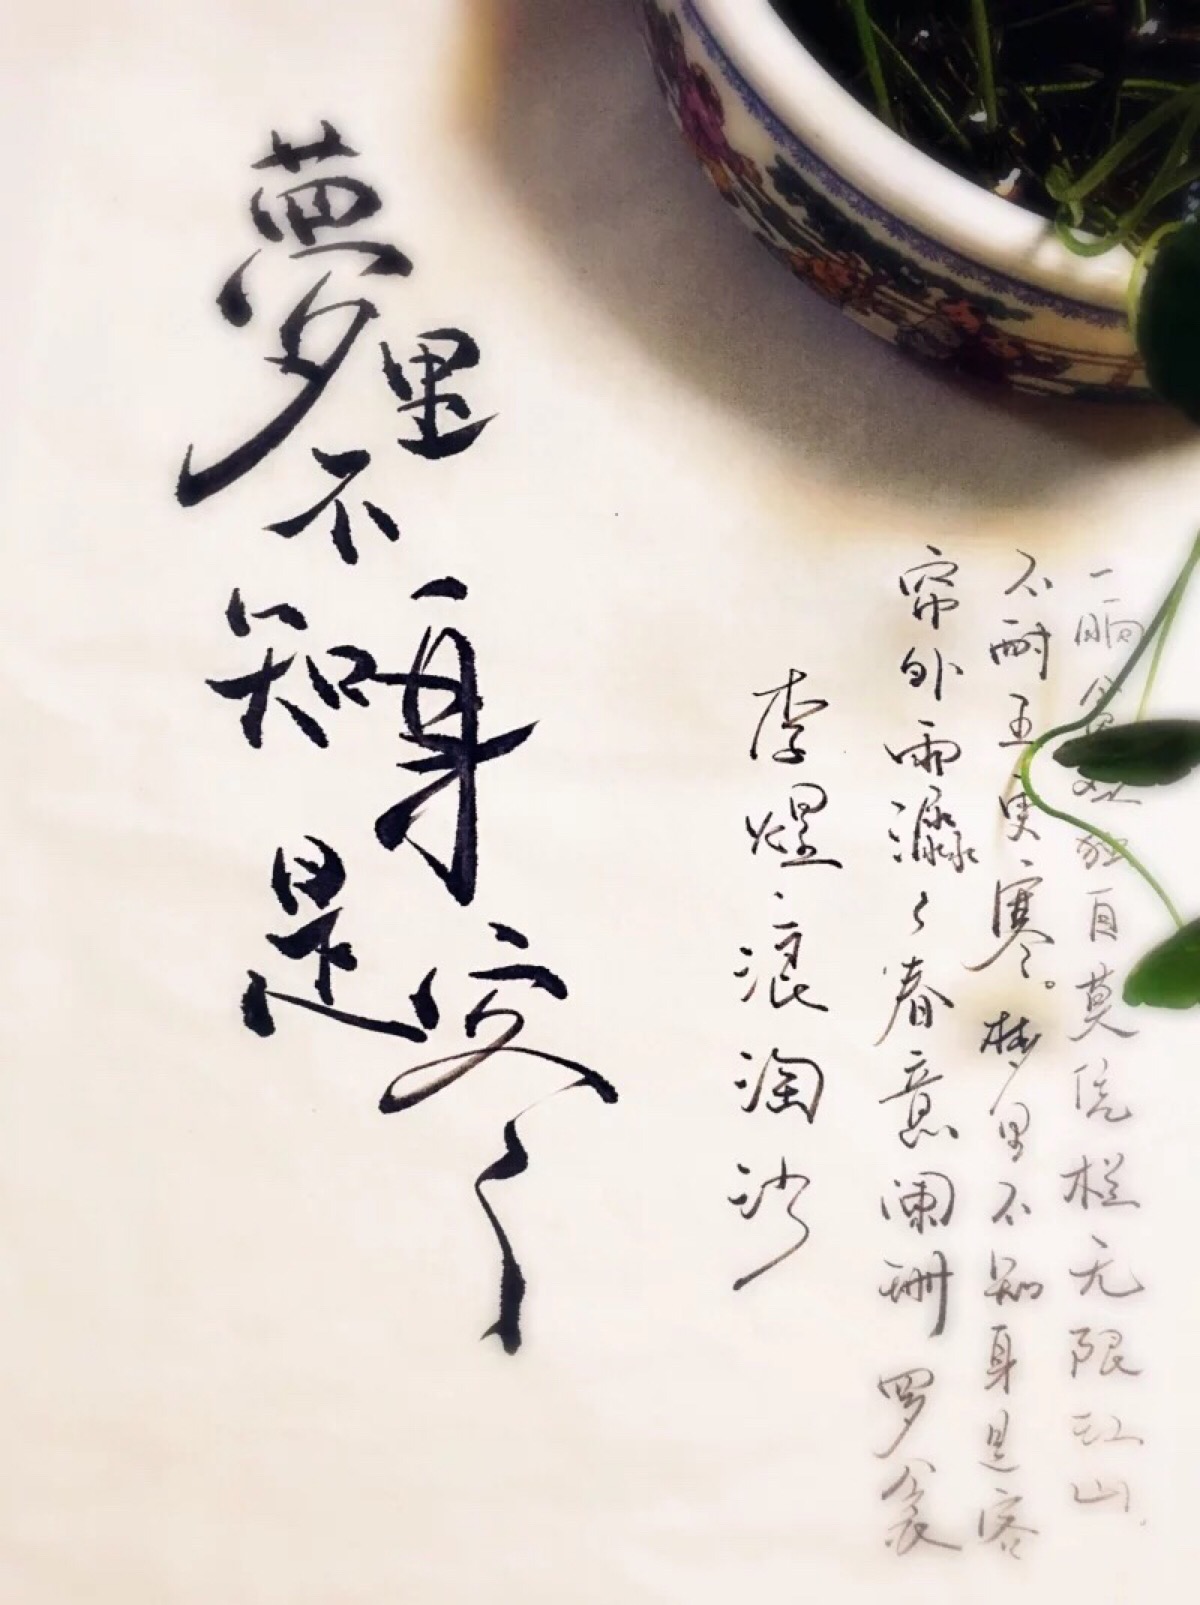 夢里不知身是客
李煜·浪淘沙
帘外雨潺々春意阑珊罗衾
不耐五更寒。梦里不知身是客
一晌贪欢独自莫凭栏无限江山。